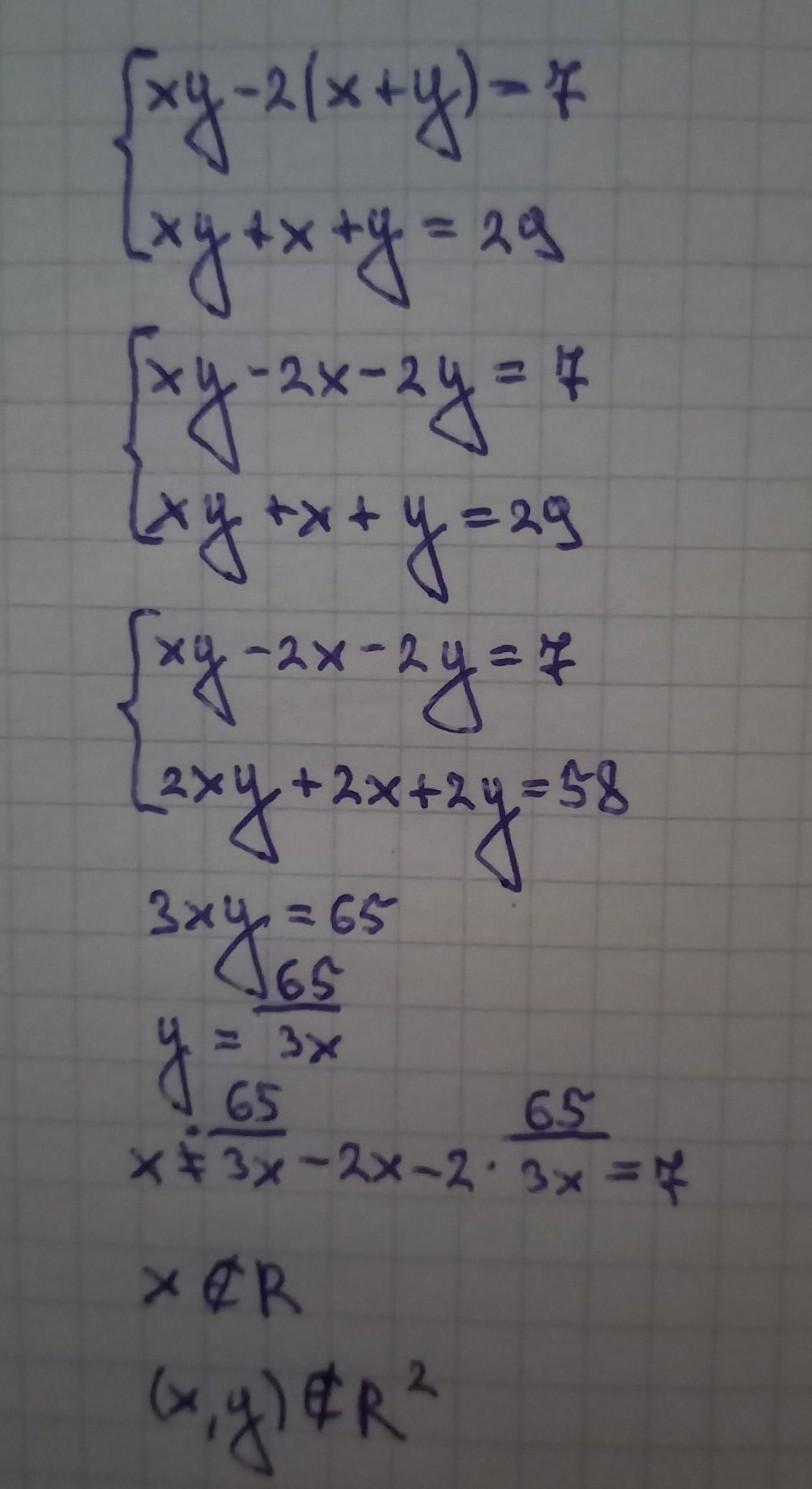 xy - 2(x + y) = 7
xy + x + y = 29
xy - 2x - 2y = 7
xy + x + y = 29
xy - 2x - 2y = 7
2xy + 2x + 2y = 58
3xy = 65
y = 65/3x
x · 65/3x - 2x - 2 · 65/3x = 7
x ∉ R
(x, y) ∉ R²